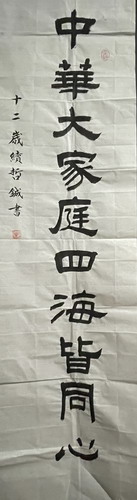 中華大家庭四海皆同心
十二歲續哲鋮書